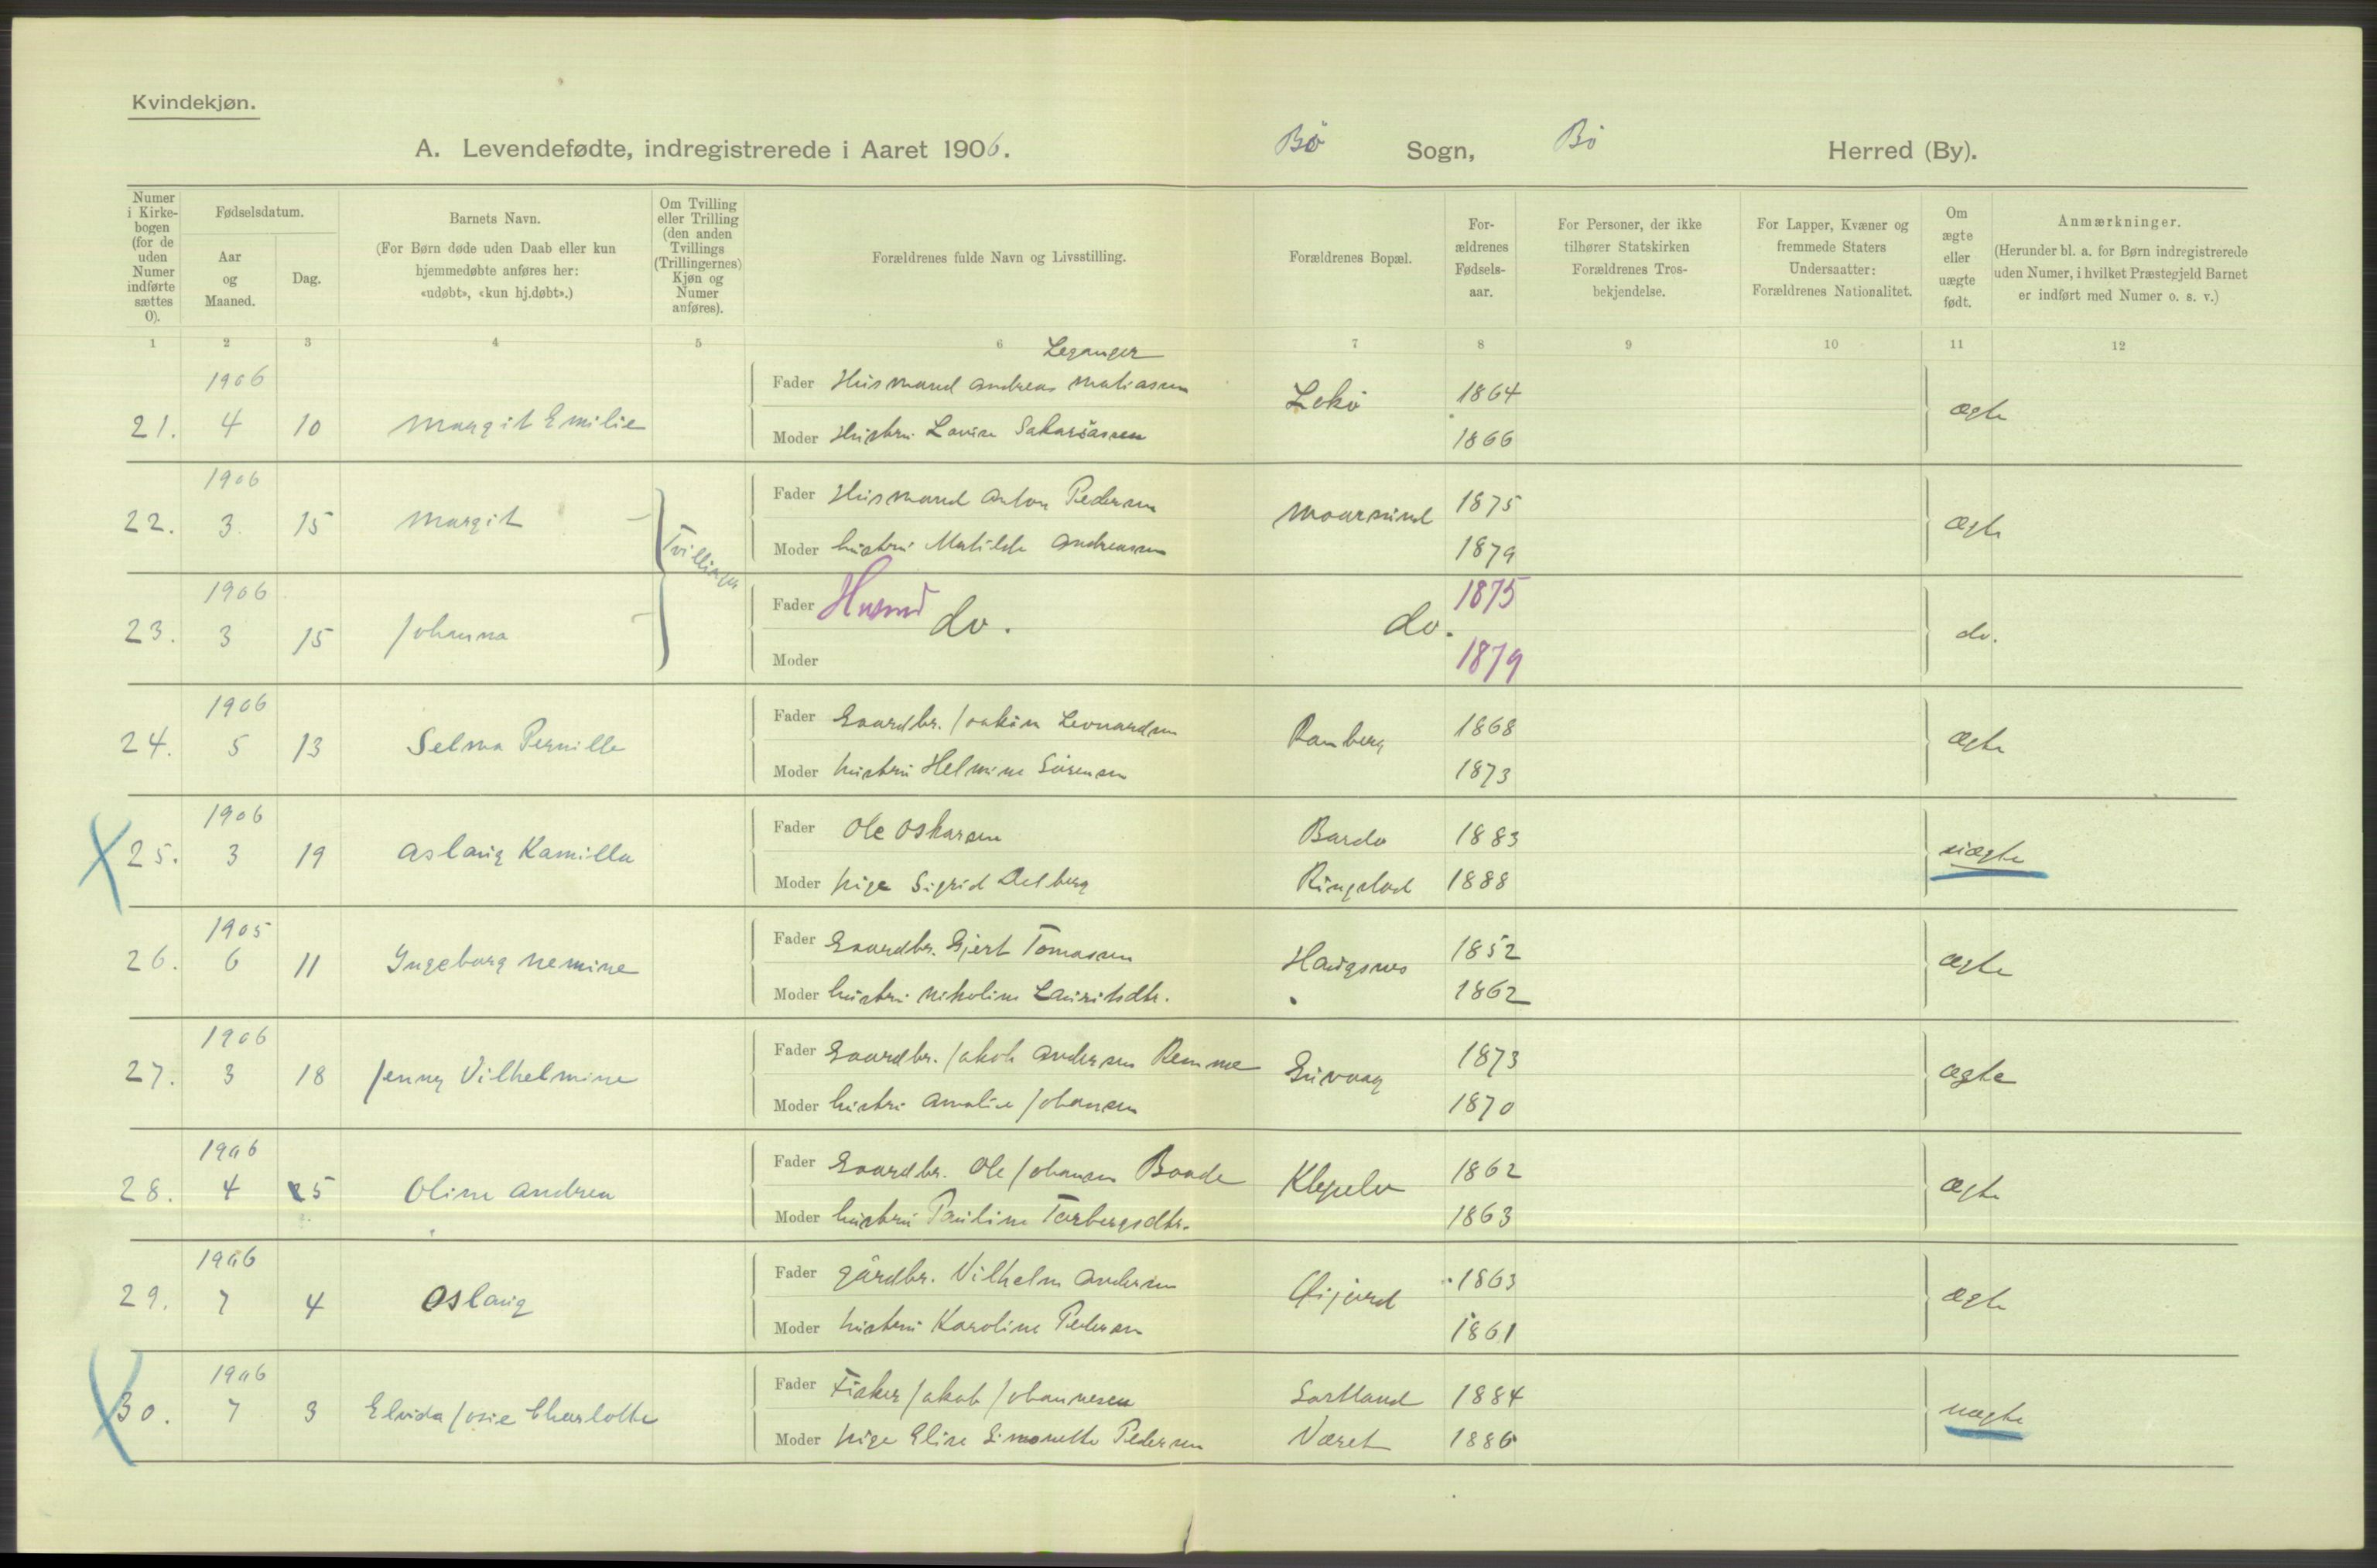 Kvindekjøn.
A. Levendefødte, indregistrerede i Aaret 1906. Bö Sogn, Bö Herred (By).
Numer i Kirkebogen (for de uden Numer indførte sættes 0).
Fødselsdatum.
Aar og Maaned.
Dag.
Barnets Navn.
(For Børn døde uden Daab eller kun hjemmedøbte anføres her: «udøbt», «kun hj.døbt».)
Om Tvilling eller Trilling (den anden Tvillings (Trillingernes) Kjøn og Numer anføres).
Forældrenes fulde Navn og Livsstilling.
Forældrenes Bopæl.
For-ældrenes Fødsels-aar.
For Personer, der ikke tilhører Statskirken Forældrenes Tros-bekjendelse.
For Lapper, Kvæner og fremmede Staters Undersaatter: Forældrenes Nationalitet.
Om ægte eller uægte født.
Anmærkninger.
(Herunder bl. a. for Børn indregistrerede uden Numer, i hvilket Præstegjeld Barnet er indført med Numer o. s. v.)
1 2 3 4 5 6 7 8 9 10 11 12
Leganger
1906 Fader Husmand Andreas Matiassen Lekö 1864
21. 4 10 Margit Emilie ægte
Moder Hustru Lovise Sakariassen 1866
1906 Fader Husmand Anton Pedersen Moarsund 1875
22. 3. 15 Margit ægte
Moder hustru Matilde Andreassen 1879
Tvillinger
1906 Fader Husmd do. do. 1875
23. 3 15 Johanna do.
Moder 1879
1906 Fader Gaardbr. Joakim Leonardsen Ramberg 1868
24. 5 13 Selma Pernille ægte
Moder hustru Helmine Sörensen 1873
1906 Fader Ole Oskarsen Bardo 1883
25. 3 19 Aslaug Kamilla uægte
Moder pige Sigrid Delberg Ringstad 1888
1905 Fader Gaardbr. Gjert Tomassen Haugsnes 1852
26. 6 11 Ingeborg Nemine ægte
Moder hustru Nikoline Lauritsdtr. 1862
1906 Fader Gaardbr. Jakob Andersen Remme Guvaag 1873
27. 3 18 Jenny Vilhelmine ægte
Moder hustru Amalie Johansen 1870
1906 Fader Gaardbr. Ole Johansen Baade 1862
28. 4 5 Oline Andrea ægte
Moder hustru Pauline Torbergsdtr. 1863
1906 Fader gårdbr. Vilhelm Andersen 1863
29. 7 4 Aslaug ægte
Moder hustru Karoline Pedersen 1861
1906 Fader Fisker Jakob Johannesen Sortland 1884
30. 7 3 Elvida Josie Charlotte uægte
Moder pige Elise Simonette Pedersen Været 1886